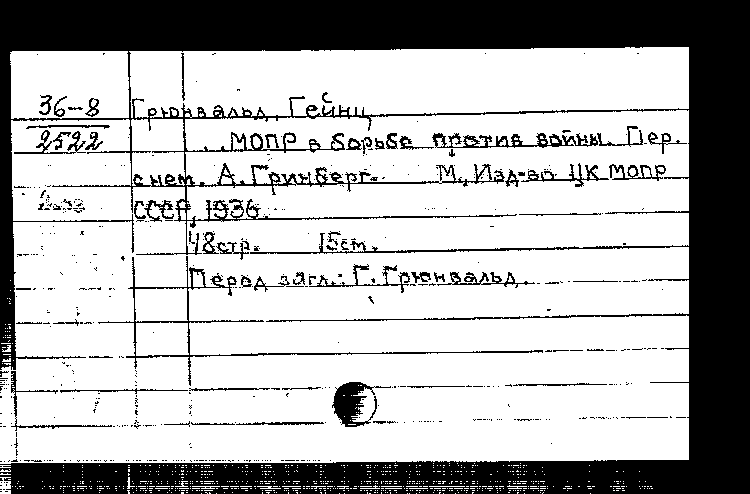 36-8
2522
Грюнвальд, Гейнц
...МОПР в борьбе против войны. Пер.
с нем. А. Гринберг. М., Изд-во ЦК МОПР
СССР, 1936.
48 стр. 15 см.
Перед загл.: Г. Грюнвальд.